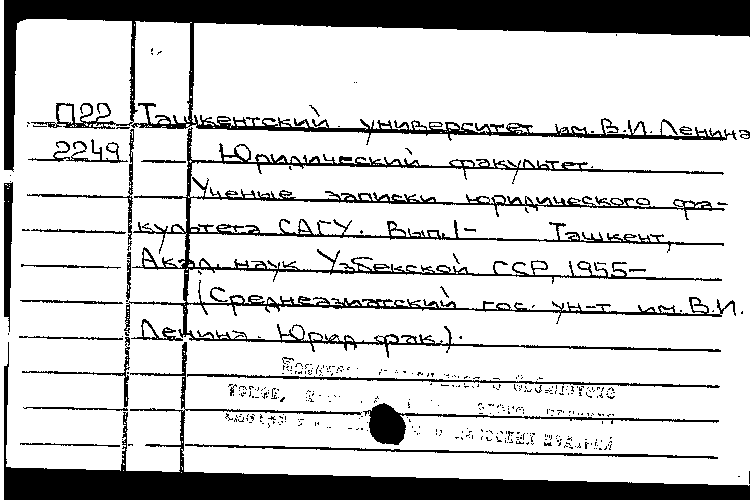 П22 Ташкентский университет им. В.И. Ленина
2249 Юридический факультет.
Ученые записки юридического фа-
культета САГУ. Вып. 1- Ташкент,
Акад. наук Узбекской ССР, 1955-
(Среднеазиатский гос. ун-т им. В.И.
Ленина. Юрид. фак.).
в библиотеке
томов,
изданий